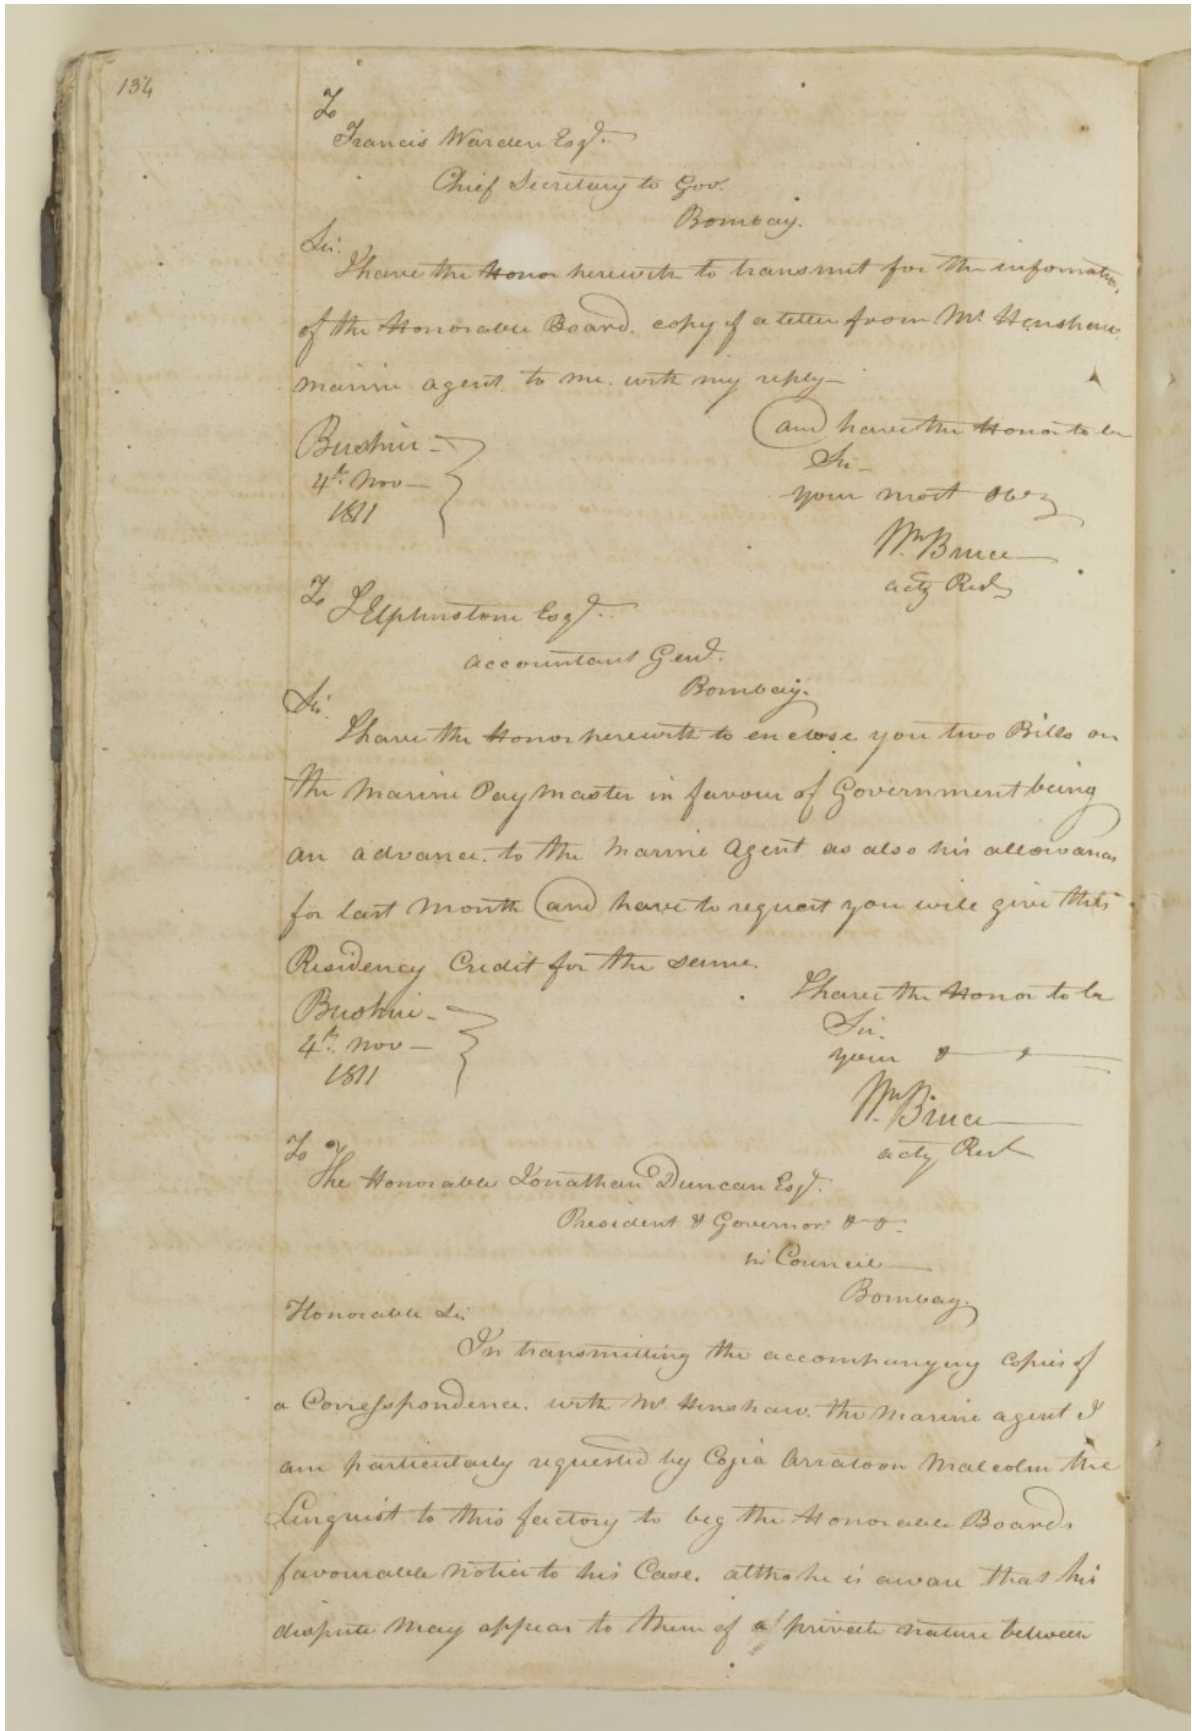 134
To
Francis Warden Esqr.
Chief Secretary to Gov.
Bombay.
Sir.
I have the Honor herewith to transmit for the information
of the Honorable Board. copy of a letter from Mr. Henshaw
marine agent to me. with my reply—
and have the Honor to be
Bushire
Sir
4th. Nov—
your most
1811
Wm. Bruce
actg Resd
To
Elphinstone Esqr.
accountant Genl.
Bombay.
Sir.
I have the Honor herewith to enclose you two Bills on
the Marine Pay Master in favour of Government being
an advance. to the Marine Agent as also his allowances
for last Month and have to request you will give this
Residency Credit for the same.
I have the Honor to be
Bushire
Sir.
4th. Nov—
your
1811
Wm. Bruce
actg Rest
To
The Honorable Jonathan Duncan Esqr.
President & Governor & &.
in Council
Bombay.
Honorable Sir
In transmitting the accompanying Copies of
a Correspondence. with Mr. Henshaw. the Marine agent I
am particularly requested by Cojia Arratoon Malcolm the
Linguist to this factory to beg the Honorable Boards
favourable notice to his Case. altho he is aware that his
dispute May appear to them of a private nature between